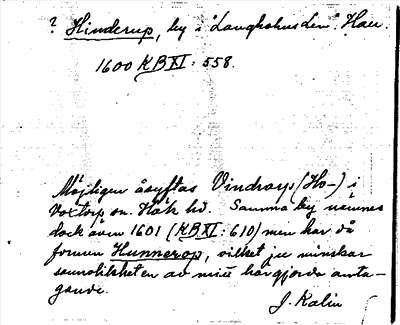 ? Hinderup, by i "Laugholms Len". Hall.
1600 KB XI: 558.
Möjligen åsyftas Vindrarp (Ho-) i
Voxtorp sn. Hök hd. Samma by nämnes
dock även 1601 (KB XI: 610) men har då
formen Hunnerop, vilket ju minskar
sannolikheten av mitt här gjorda anta-
gande.
J. Kalin